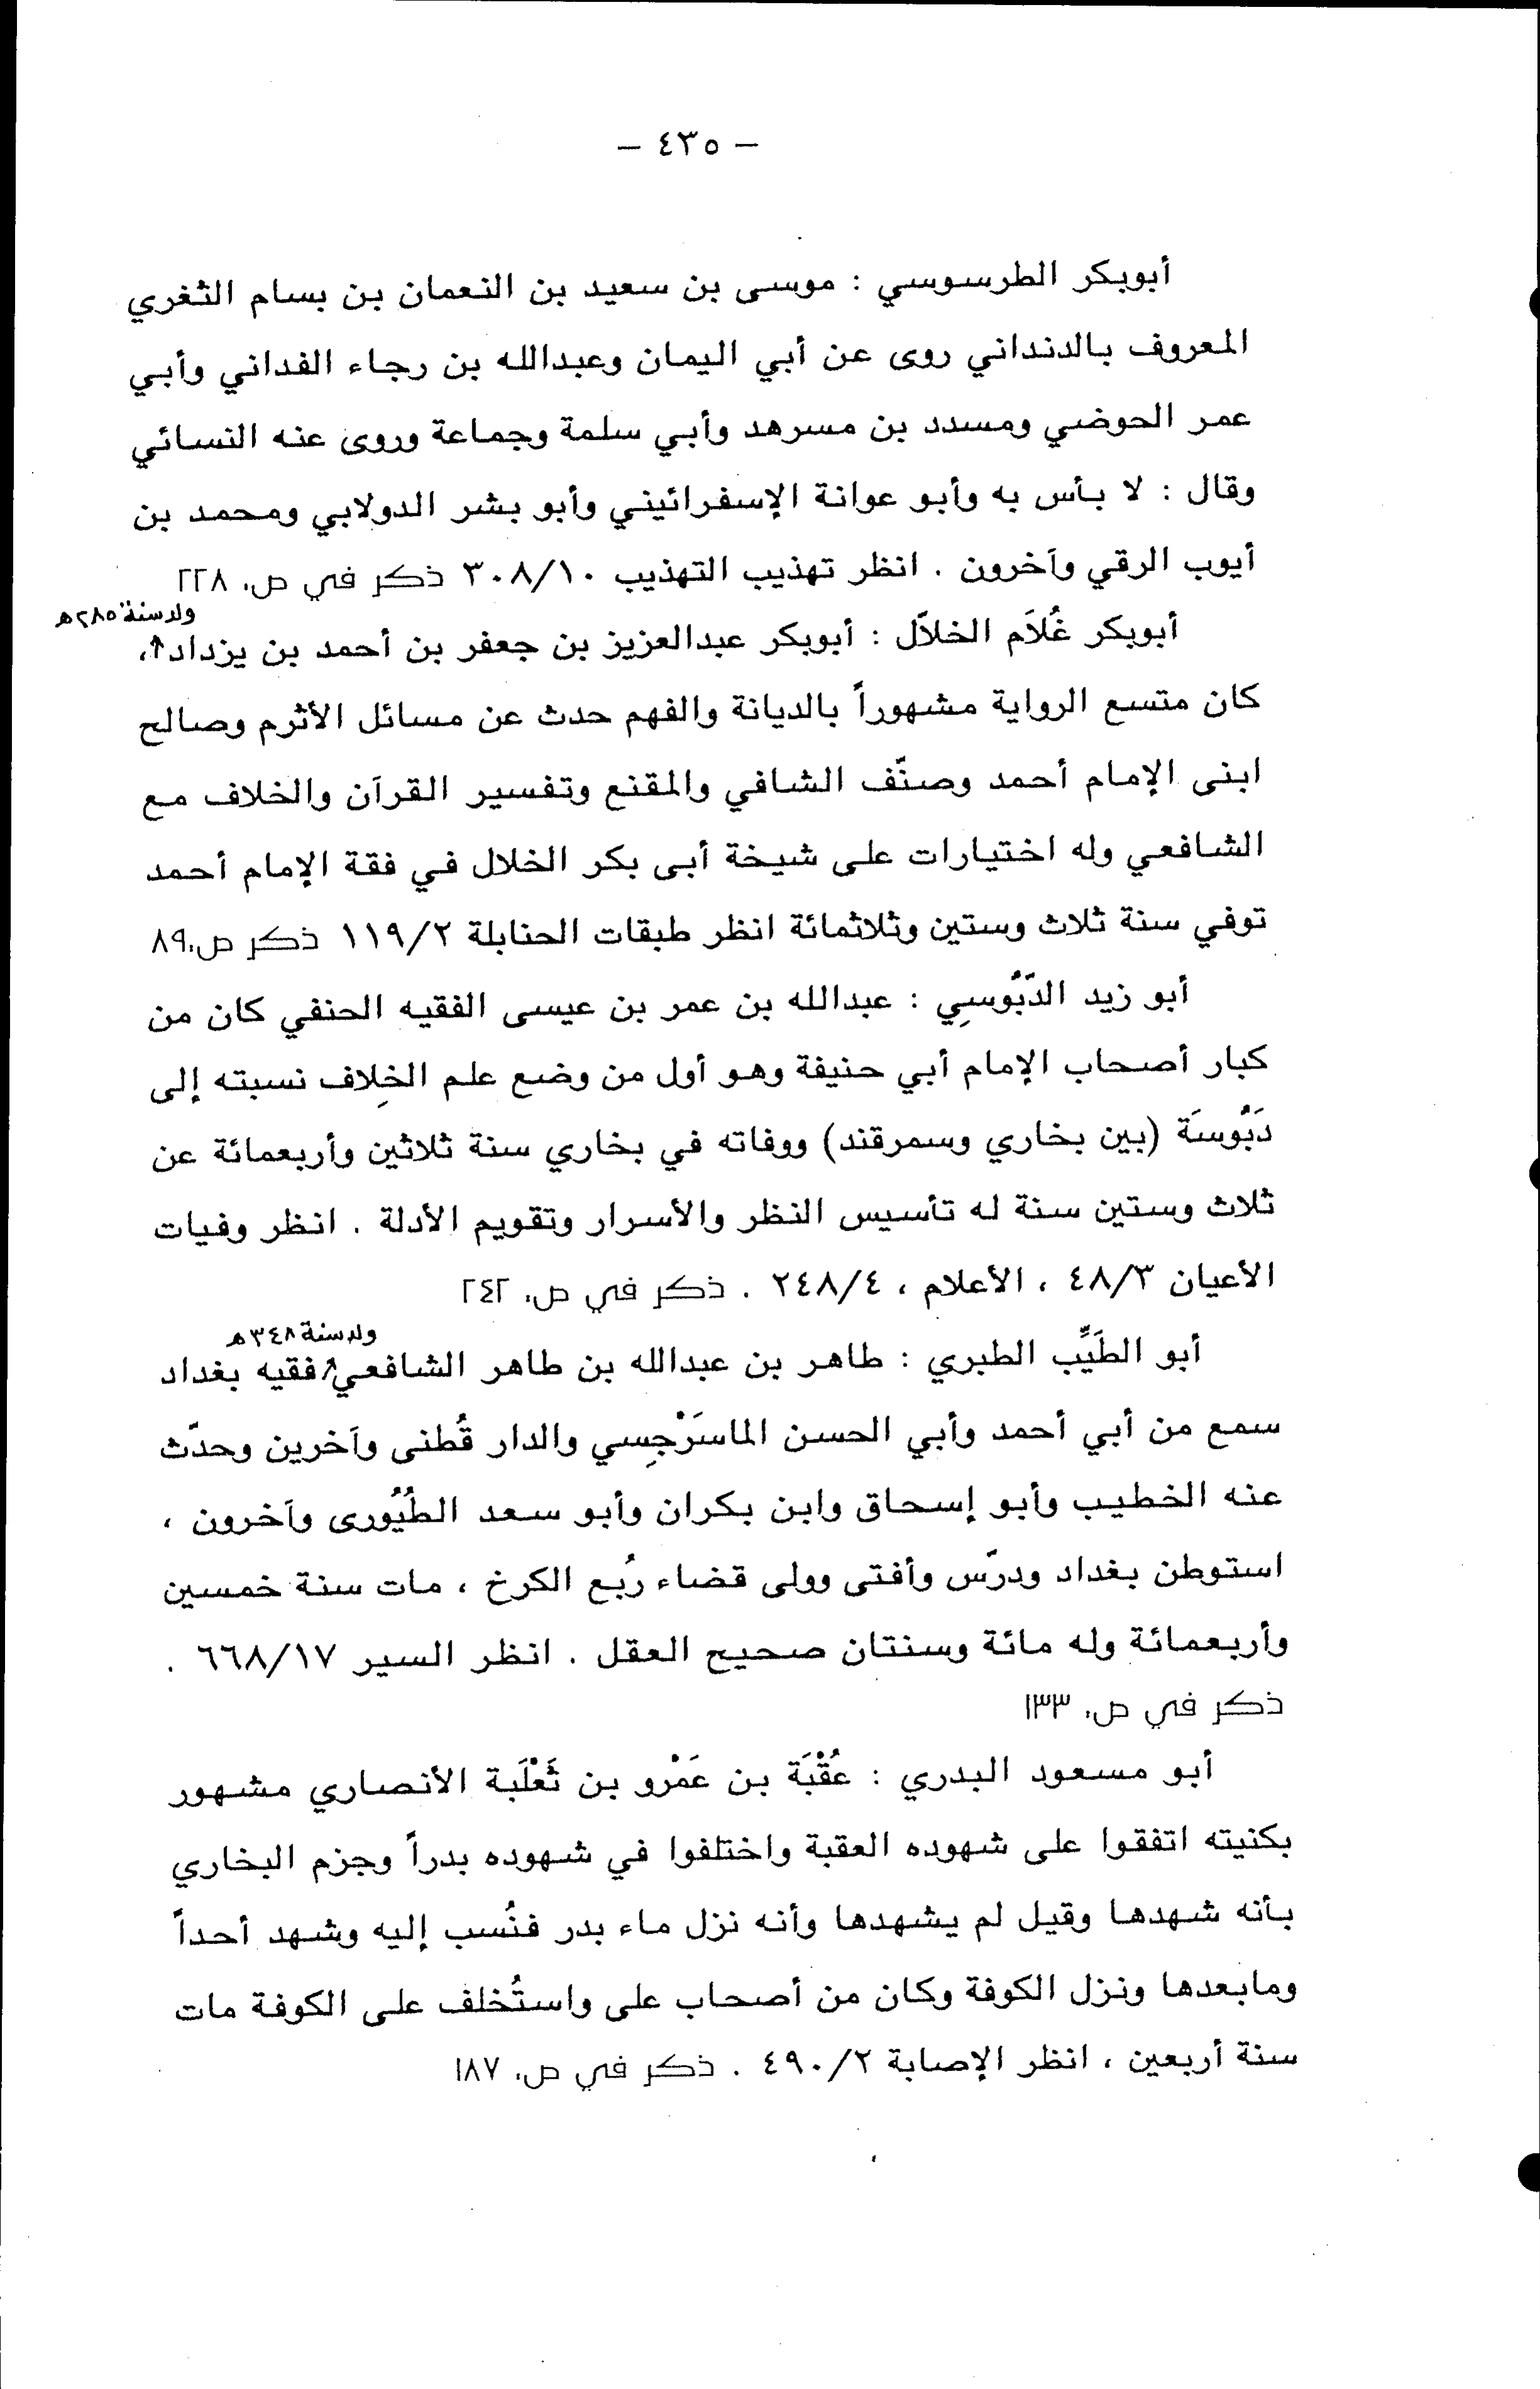 – ٤٣٥ –
أبوبكر الطرسوسي : موسى بن سعيد بن النعمان بن بسام الثغري
المعروف بالدنداني روى عن أبي اليمان وعبدالله بن رجاء الفداني وأبي
عمر الحوضي ومسدد بن مسرهد وأبي سلمة وجماعة وروى عنه النسائي
وقال : لا بأس به وأبو عوانة الإسفرائيني وأبو بشر الدولابي ومحمد بن
أيوب الرقي وآخرون . انظر تهذيب التهذيب ٣٠٨/١٠ ذكر في ص. ٢٢٨
ولد سنة ٢٨٥ه
أبوبكر غُلاَم الخلاّل : أبوبكر عبدالعزيز بن جعفر بن أحمد بن يزداد ،
كان متسع الرواية مشهوراً بالديانة والفهم حدث عن مسائل الأثرم وصالح
ابنى الإمام أحمد وصنّف الشافي والمقنع وتفسير القرآن والخلاف مع
الشافعي وله اختيارات على شيخة أبى بكر الخلال في فقة الإمام أحمد
توفي سنة ثلاث وستين وثلاثمائة انظر طبقات الحنابلة ١١٩/٢ ذكر ص.٨٩
أبو زيد الدَّبُّوسِي : عبدالله بن عمر بن عيسى الفقيه الحنفي كان من
كبار أصحاب الإمام أبي حنيفة وهو أول من وضع علم الخِلاف نسبته إلى
دَبُّوسَة (بين بخاري وسمرقند) ووفاته في بخاري سنة ثلاثين وأربعمائة عن
ثلاث وستين سنة له تأسيس النظر والأسرار وتقويم الأدلة . انظر وفيات
الأعيان ٤٨/٣ ، الأعلام ، ٢٤٨/٤ . ذكر في ص. ٢٤٢
ولد سنة ٣٤٨ه
أبو الطَيِّب الطبري : طاهر بن عبدالله بن طاهر الشافعي فقيه بغداد
سمع من أبي أحمد وأبي الحسن الماسَرْجِسي والدار قُطنى وآخرين وحدّث
عنه الخطيب وأبو إسحاق وابن بكران وأبو سعد الطُيُورى وآخرون ،
استوطن بغداد ودرّس وأفتى وولى قضاء رُبع الكرخ ، مات سنة خمسين
وأربعمائة وله مائة وسنتان صحيح العقل . انظر السير ٦٦٨/١٧ .
ذكر في ص. ١٣٣
أبو مسعود البدري : عُقْبَة بن عَمْرو بن ثَعْلَبة الأنصاري مشهور
بكنيته اتفقوا على شهوده العقبة واختلفوا في شهوده بدراً وجزم البخاري
بأنه شهدها وقيل لم يشهدها وأنه نزل ماء بدر فنُسب إليه وشهد أحداً
ومابعدها ونزل الكوفة وكان من أصحاب على واستُخلف على الكوفة مات
سنة أربعين ، انظر الإصابة ٤٩٠/٢ . ذكر في ص. ١٨٧